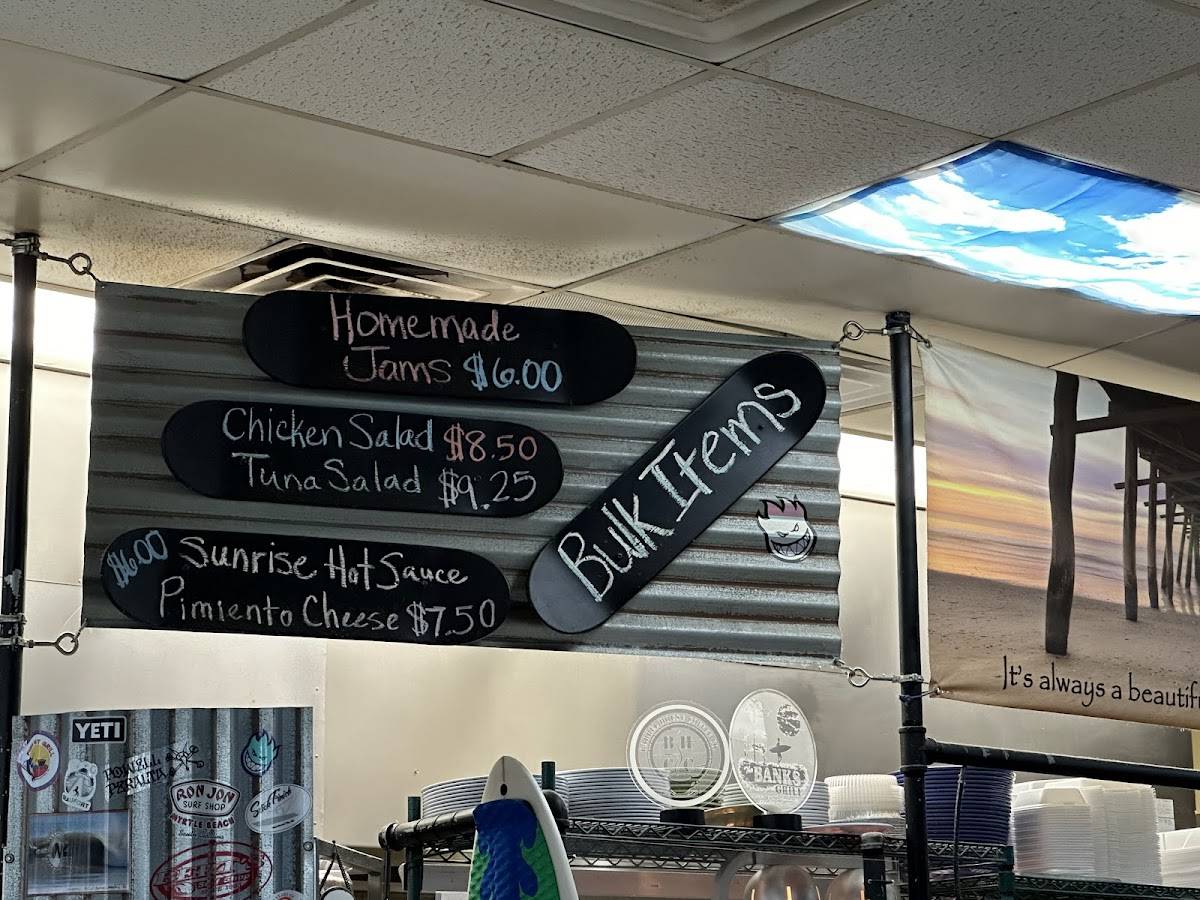 Homemade
Jams $6.00
Chicken Salad $8.50
Tuna Salad $9.25
$6.00 Sunrise Hot Sauce
Pimiento Cheese $7.50
Bulk Items
It's always a
YETI
POWELL
PERALTA
RON JON
SURF SHOP
MYRTLE BEACH
BANKS
GRILL